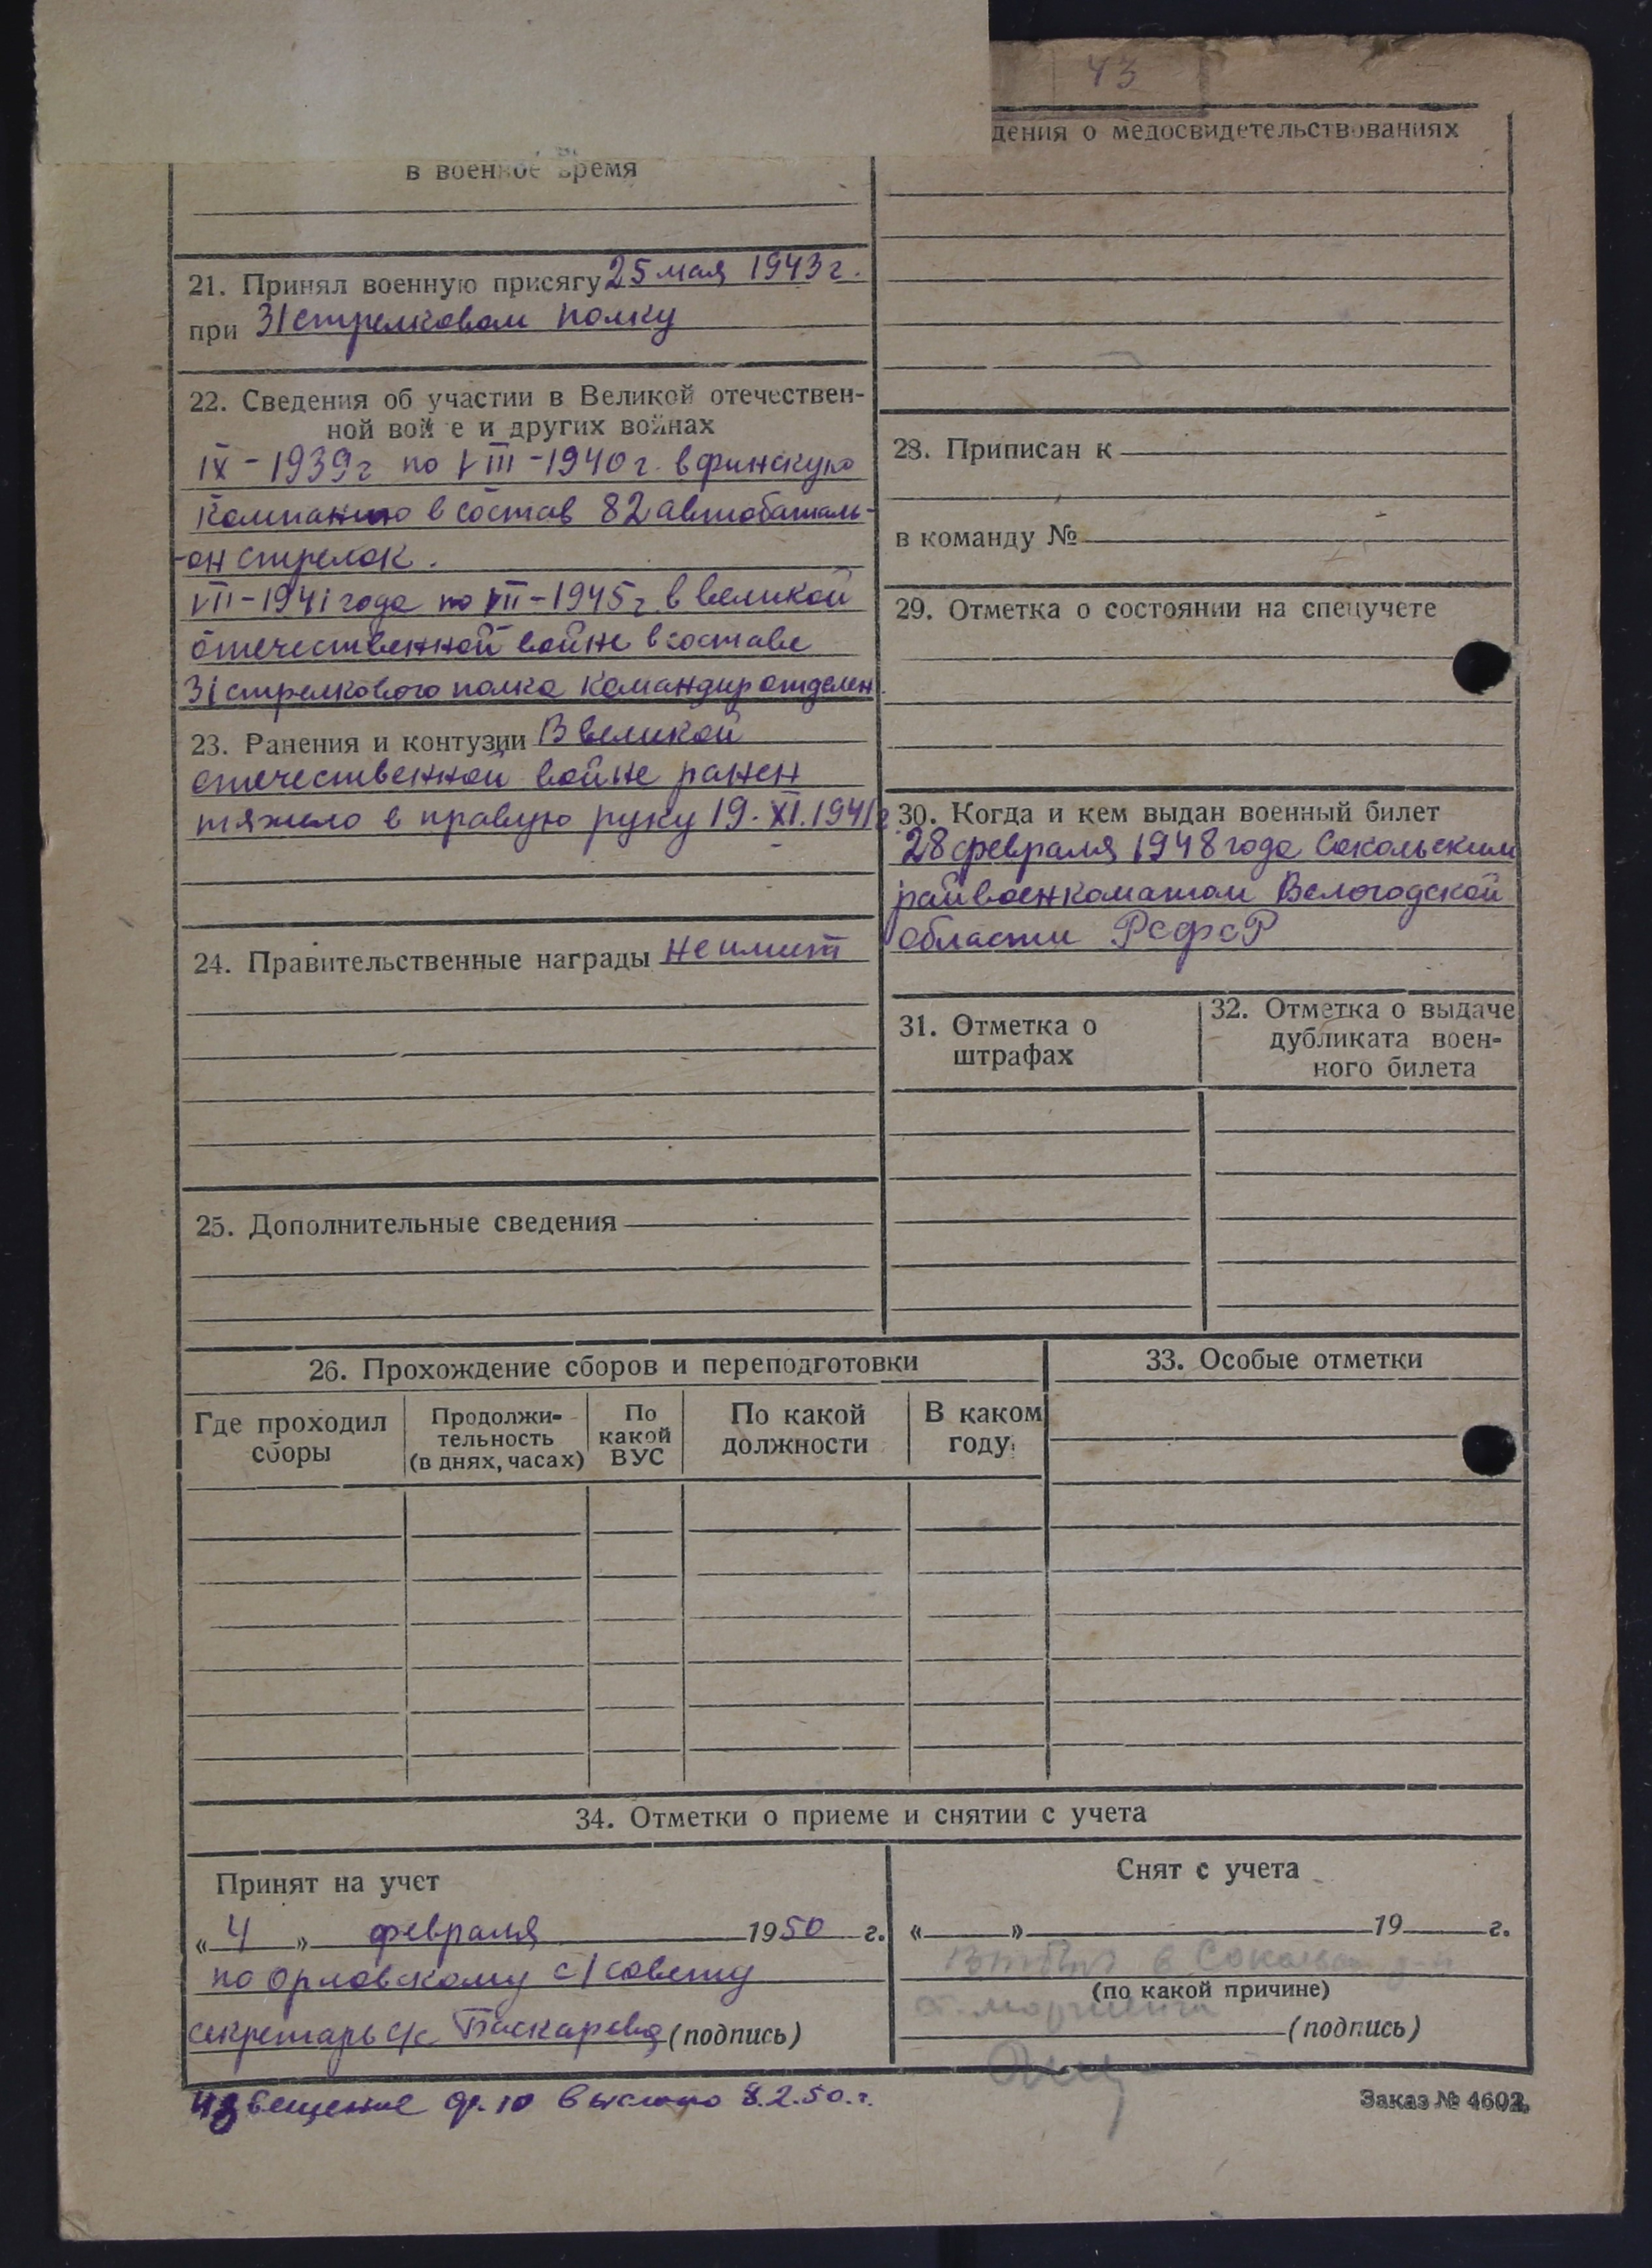 43
дения о медосвидетельствованиях
в военное время
21. Принял военную присягу 25 мая 1943 г.
при 31 стрелковом полку
22. Сведения об участии в Великой отечествен-
ной вой е и других войнах
IX - 1939 г по VIII - 1940 г. в финскую
Компанию в состав 82 автобаталь-
-он стрелок.
VII - 1941 года по VII - 1945 г. в великой
отечественной войне в составе
31 стрелкового полка командир отделен.
23. Ранения и контузии В великой
отечественной войне ранен
тяжело в правую руку 19. XI. 1941 г
24. Правительственные награды не имеет
25. Дополнительные сведения
28. Приписан к
в команду №
29. Отметка о состоянии на спецучете
30. Когда и кем выдан военный билет
28 февраля 1948 года Сокольским
райвоенкоматом Вологодской
области РСФСР
31. Отметка о
штрафах
32. Отметка о выдаче
дубликата воен-
ного билета
26. Прохождение сборов и переподготовки
Где проходил
сборы
Продолжи-
тельность
(в днях, часах)
По
какой
ВУС
По какой
должности
В каком
году
33. Особые отметки
34. Отметки о приеме и снятии с учета
Принят на учет
« 4 » февраля 1950 г.
по Орловскому с/совету
секретарь с/с (подпись)
Извещение ф. 10 выслано 8.2.50. г.
Снят с учета
« » 19 г.
в
(по какой причине)
(подпись)
Заказ № 4602.